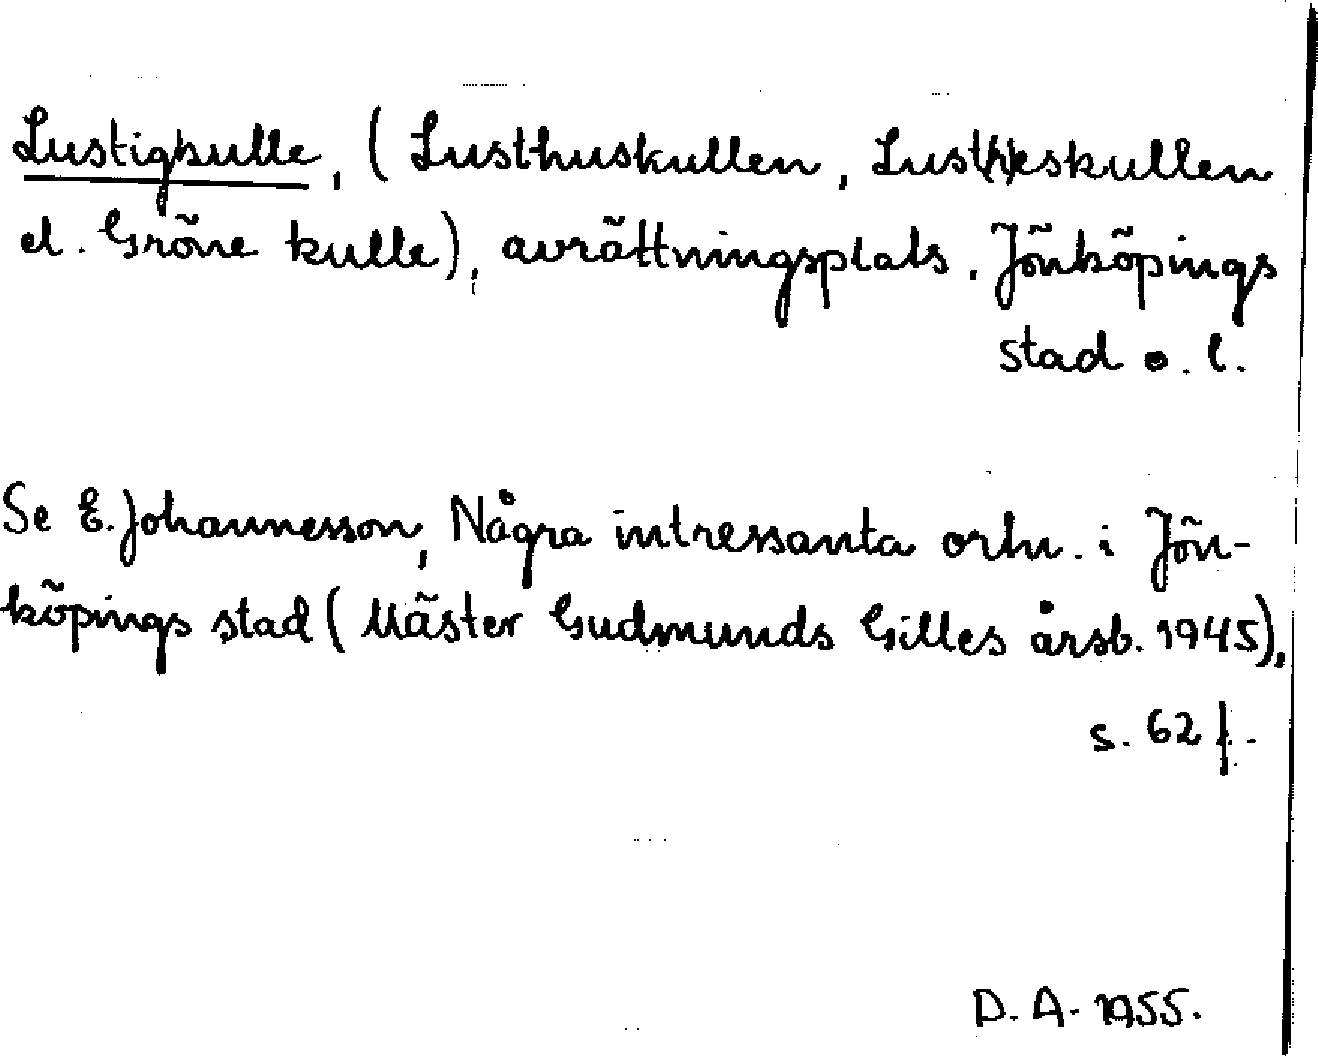 Lustigkulle, (Lusthuskullen, Lusteskullen
el. Gröne kulle), avrättningsplats. Jönköpings
stad o. l.
Se E. Johannesson, Några intressanta ortn. i Jön-
köpings stad (Mäster Gudmunds Gilles årsb. 1945),
s. 62 f.
D. A. 1955.